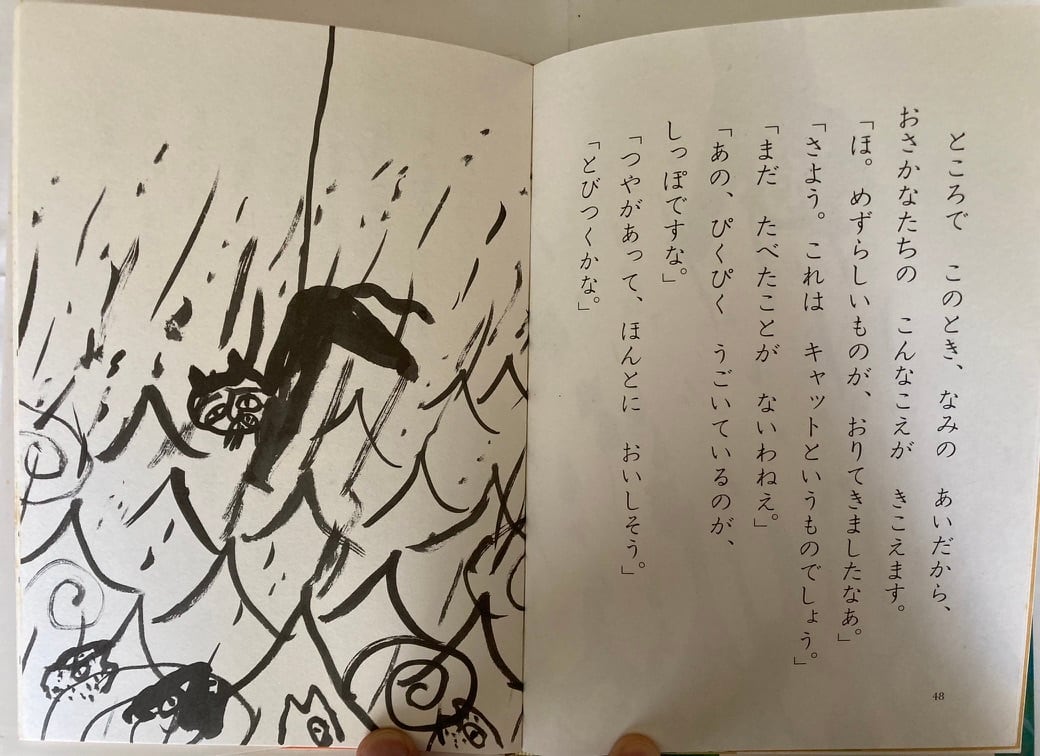 ところで　このとき、なみの　あいだから、
おさかなたちの　こんなこえが　きこえます。
「ほ。めずらしいものが、おりてきましたなぁ。」
「さよう。これは　キャットというものでしょう。」
「まだ　たべたことが　ないわねえ。」
「あの、ぴくぴく　うごいているのが、
しっぽですな。」
「つやがあって、ほんとに　おいしそう。」
「とびつくかな。」
48